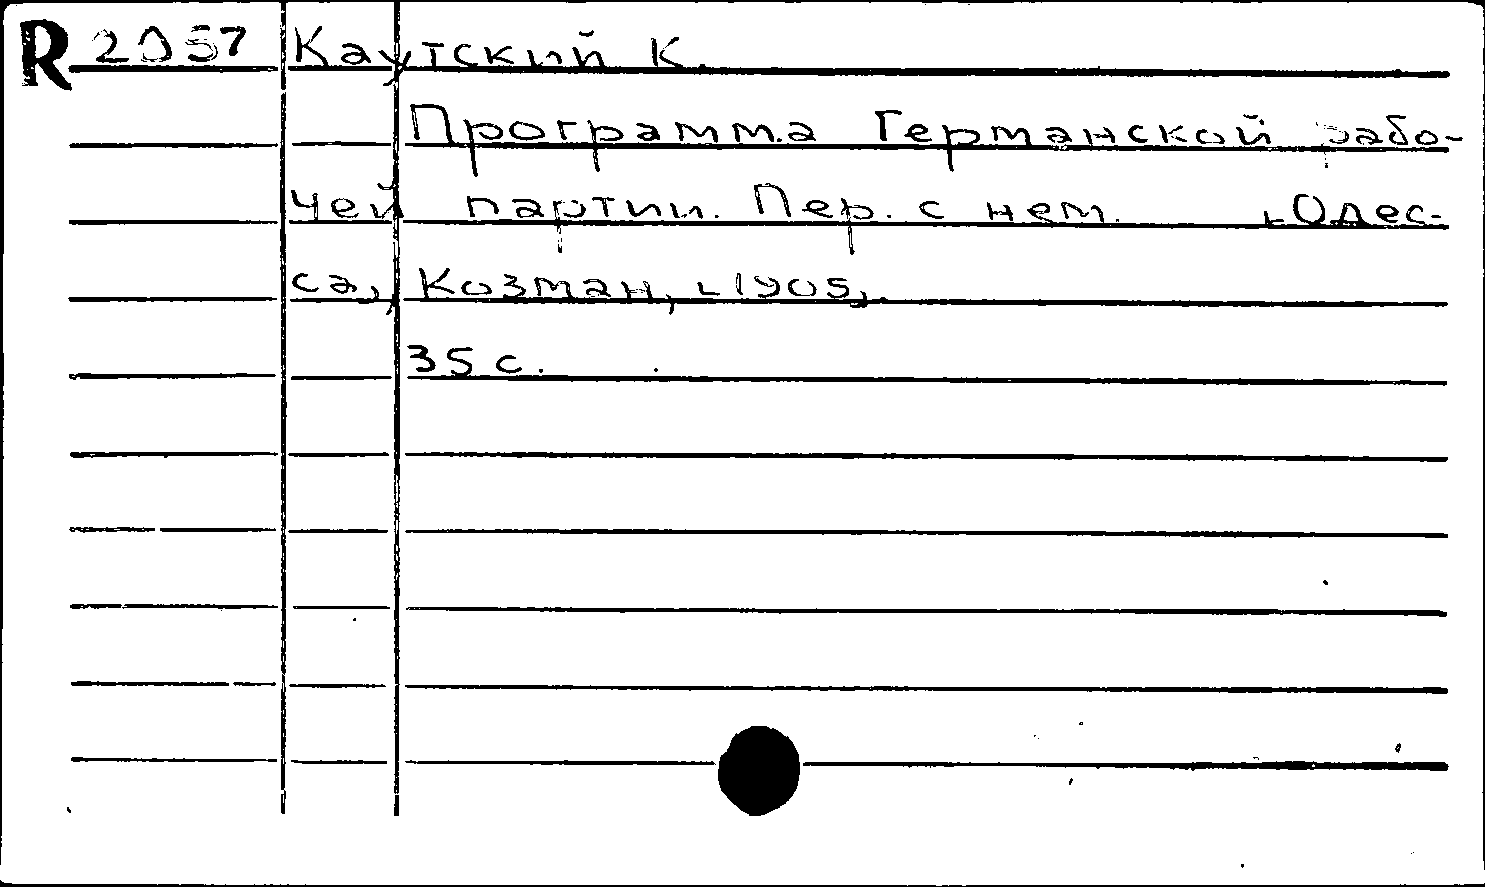 R 2057 Каутский К.
Программа Германской рабо-
чей партии. Пер. с нем. [Одес-
са], Козман, [1905].
35 с.